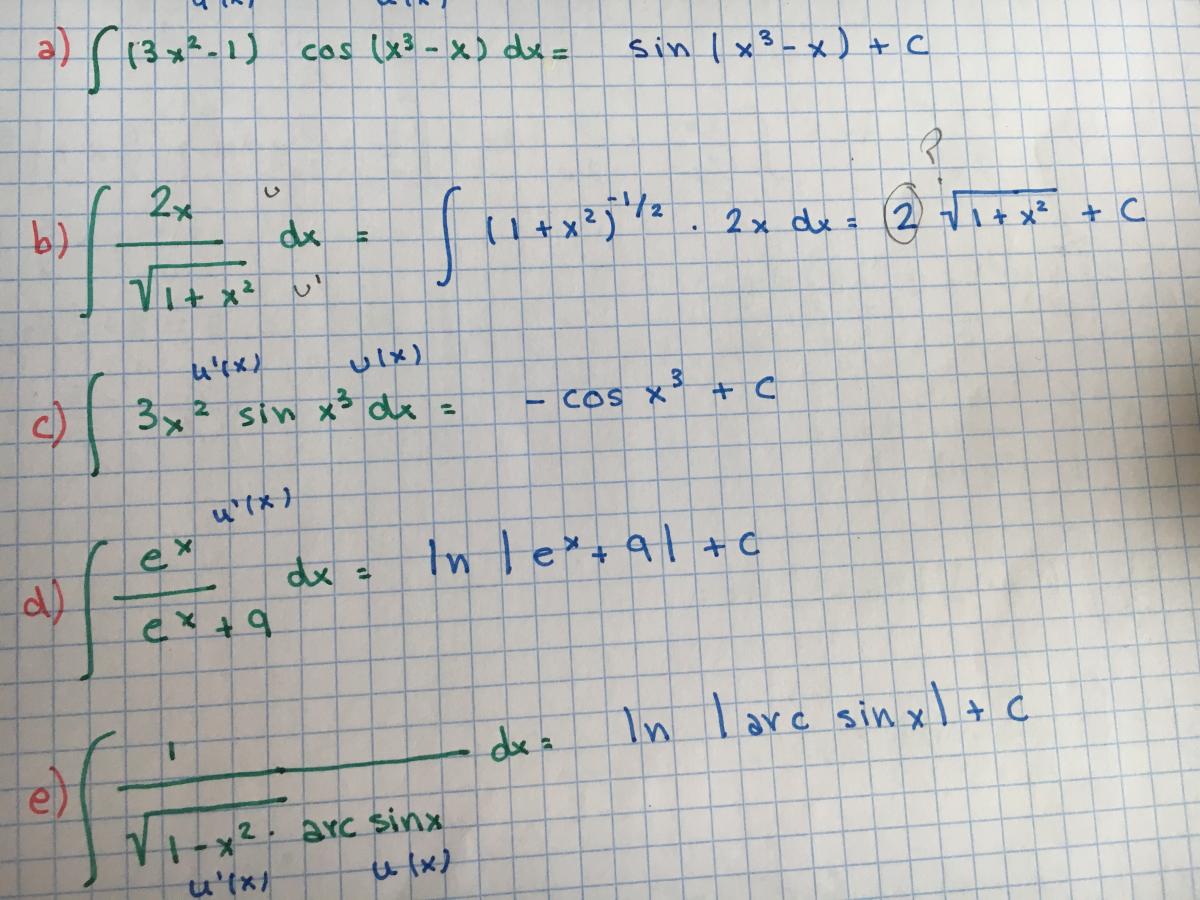 a) ∫ (3x² - 1) cos (x³ - x) dx = sin (x³ - x) + c
?
b) ∫ 2x / √(1 + x²) dx = ∫ (1 + x²)^(-1/2) · 2x dx = 2 √(1 + x²) + c
u
u'
u'(x) u(x)
c) ∫ 3x² sin x³ dx = - cos x³ + c
u'(x)
d) ∫ e^x / (e^x + 9) dx = ln |e^x + 9| + c
e) ∫ 1 / (√(1 - x²) · arc sinx) dx = ln |arc sin x| + c
u'(x) u(x)